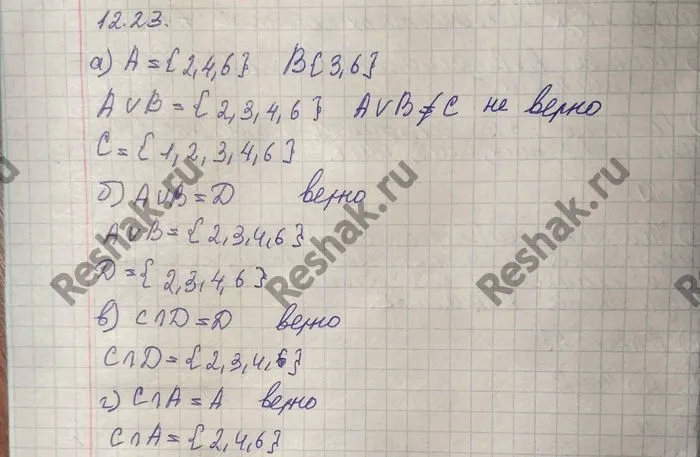 12.23.
а) A = {2,4,6} B{3,6}
A∪B = {2,3,4,6} A∪B ≠ C не верно
C = {1,2,3,4,6}
б) A∪B = D верно
A∪B = {2,3,4,6}
D = {2,3,4,6}
в) C∩D = D верно
C∩D = {2,3,4,6}
г) C∩A = A верно
C∩A = {2,4,6}
Reshak.ru
Reshak.ru
Reshak.ru
Reshak.ru